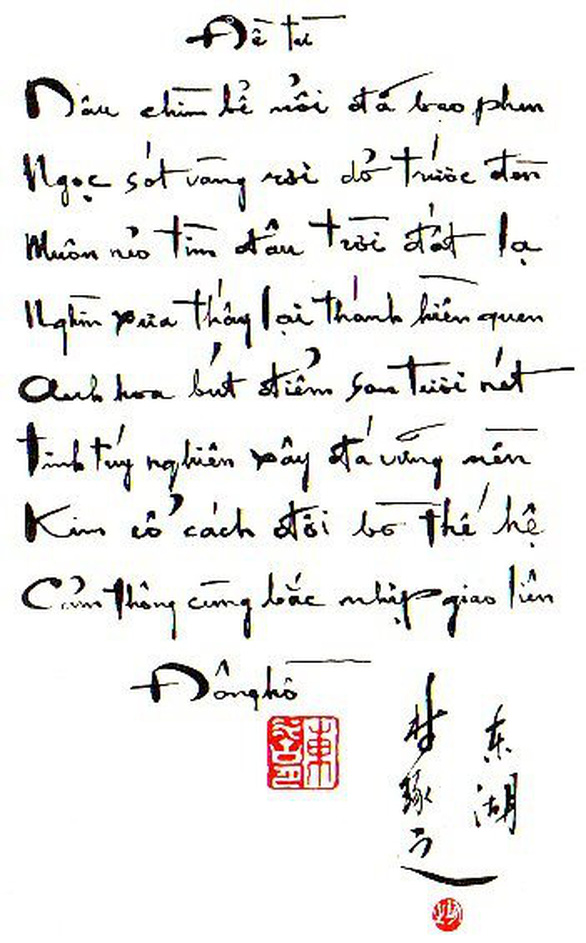 Đề từ
Dâu chìm bể nổi đã bao phen
Ngọc sót vàng rơi dở trước đèn
Muôn nẻo tìm đâu trời đất lạ
Nghìn xưa thấy lại thánh hiền quen
Anh hoa bút điểm sao tươi nét
Tinh túy nghiên xây đá vững nền
Kim cổ cách đôi bờ thế hệ
Cảm thông cùng bắc nhịp giao liên
Đông hồ
東湖
东湖
林琢之